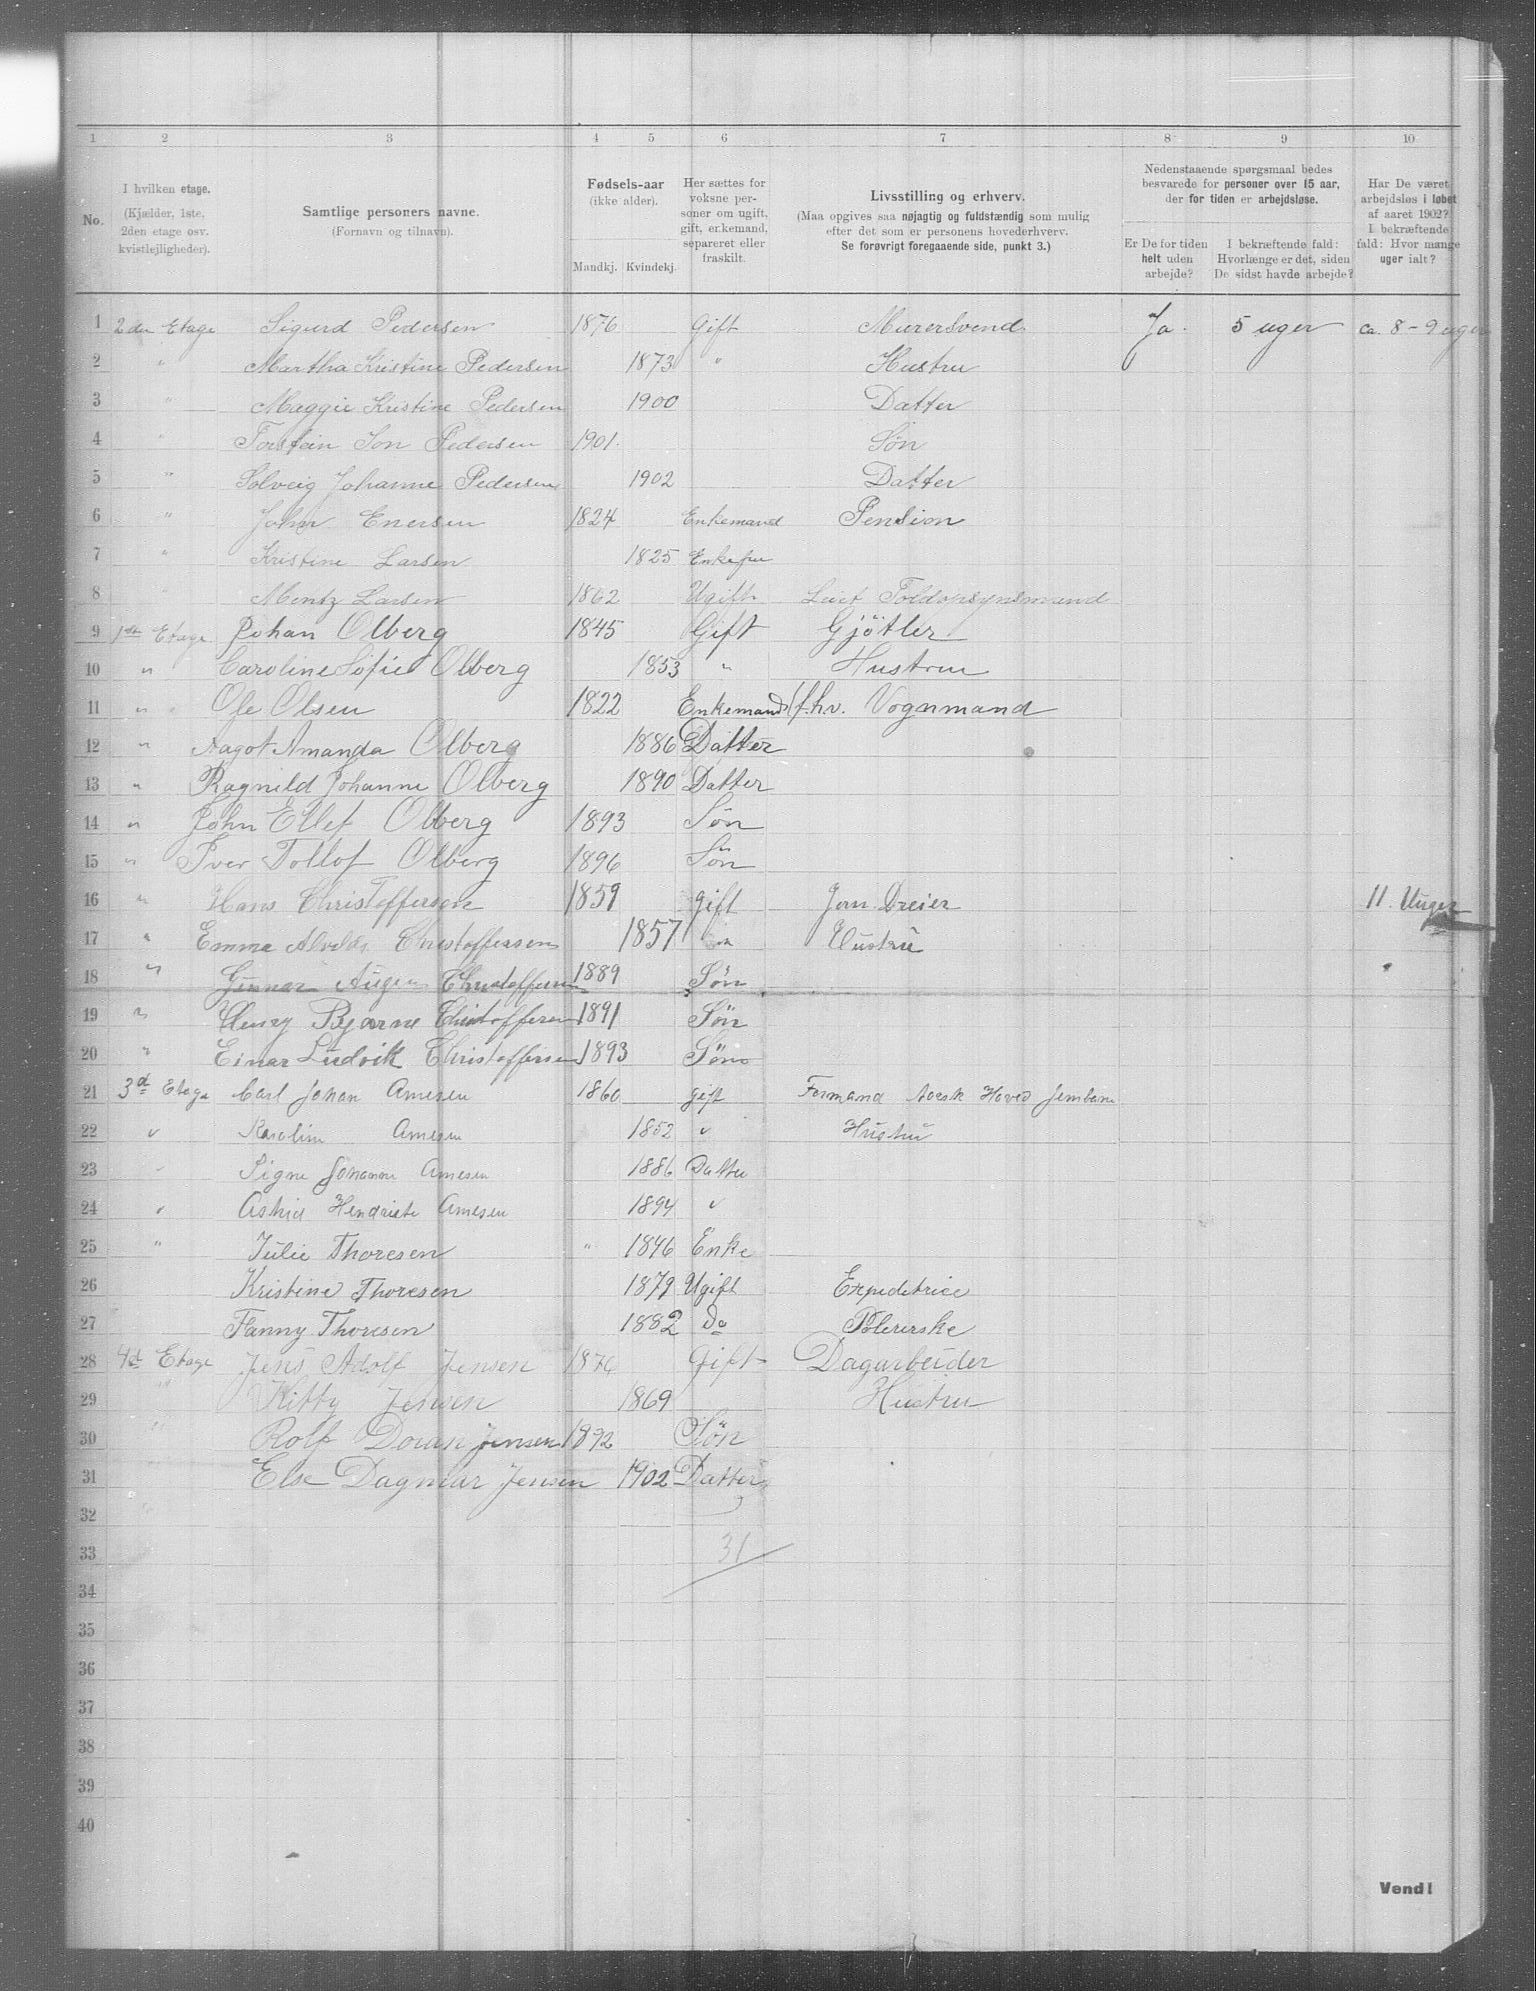 1 2 3 4 5 6 7 8 9 10
No.
I hvilken etage.
(Kjælder, 1ste,
2den etage osv.
kvistlejligheder).
Samtlige personers navne.
(Fornavn og tilnavn).
Fødsels-aar
(ikke alder).
Mandkj. Kvindekj.
Her sættes for
voksne per-
soner om ugift,
gift, enkemand,
separeret eller
fraskilt.
Livsstilling og erhverv.
(Maa opgives saa nøjagtig og fuldstændig som mulig
efter det som er personens hovederhverv.
Se forøvrigt foregaaende side, punkt 3.)
Nedenstaaende spørgsmaal bedes
besvarede for personer over 15 aar,
der for tiden er arbejdsløse.
Er De for tiden
helt uden
arbejde?
I bekræftende fald:
Hvorlænge er det, siden
De sidst havde arbejde?
Har De været
arbejdsløs i løbet
af aaret 1902?
I bekræftende
fald: Hvor mange
uger ialt?
1 2den Etage Sigurd Pedersen 1876 Gift Murersvend Ja. 5 uger ca. 8-9 uger
2 " Martha Kristine Pedersen 1873 " Hustru
3 " Maggie Kristine Pedersen 1900 Datter
4 " Torstein Jon Pedersen 1901. Søn
5 " Solveig Johanne Pedersen 1902 Datter
6 " John Enersen 1824 Enkemand Pension
7 " Kristine Larsen 1825 Enkefru
8 " Mentz Larsen 1862 Ugift Toldopsynsmand
9 1ste Etage Johan Olberg 1845 Gift Gjøtler
10 " Caroline Sofie Olberg 1853 " Hustru
11 " Ole Olsen 1822 Enkemand f.h.v. Vognmand
12 " Aagot Amanda Olberg 1886 Datter
13 " Ragnild Johanne Olberg 1890 Datter
14 " John Ellef Olberg 1893 Søn
15 " Iver Tollof Olberg 1896 Søn
16 " Hans Christoffersen 1859 gift Jern Dreier 11. Uuger
17 " Emma Christoffersen 1857 " Hustru
18 " Gunnar Christoffersen 1889 Søn
19 " Henry Bjarne Christoffersen 1891 Søn
20 " Einar Ludvik Christoffersen 1893 Søn
21 3d Etage Carl Johan Arnesen 1860 gift Formand Norsk Hoved Jernbane
22 " Karoline Arnesen 1852 " Hustru
23 " Signe Johanne Arnesen 1886 Datter
24 " Astrid Hendriete Arnesen 1894 "
25 " Julie Thoresen " 1846 Enke
26 Kristine Thoresen 1879 Ugift Expeditrice
27 Fanny Thoresen 1882 Do Polererske
28 4d Etage Jens Adolf Jensen 1876 Gift Dagarbeider
29 " Kitty Jensen 1869 Hustru
30 " Rolf Jensen 1892 Søn
31 " Else Dagmar Jensen 1902 Datter
32
33 31
34
35
36
37
38
39
40
Vend!